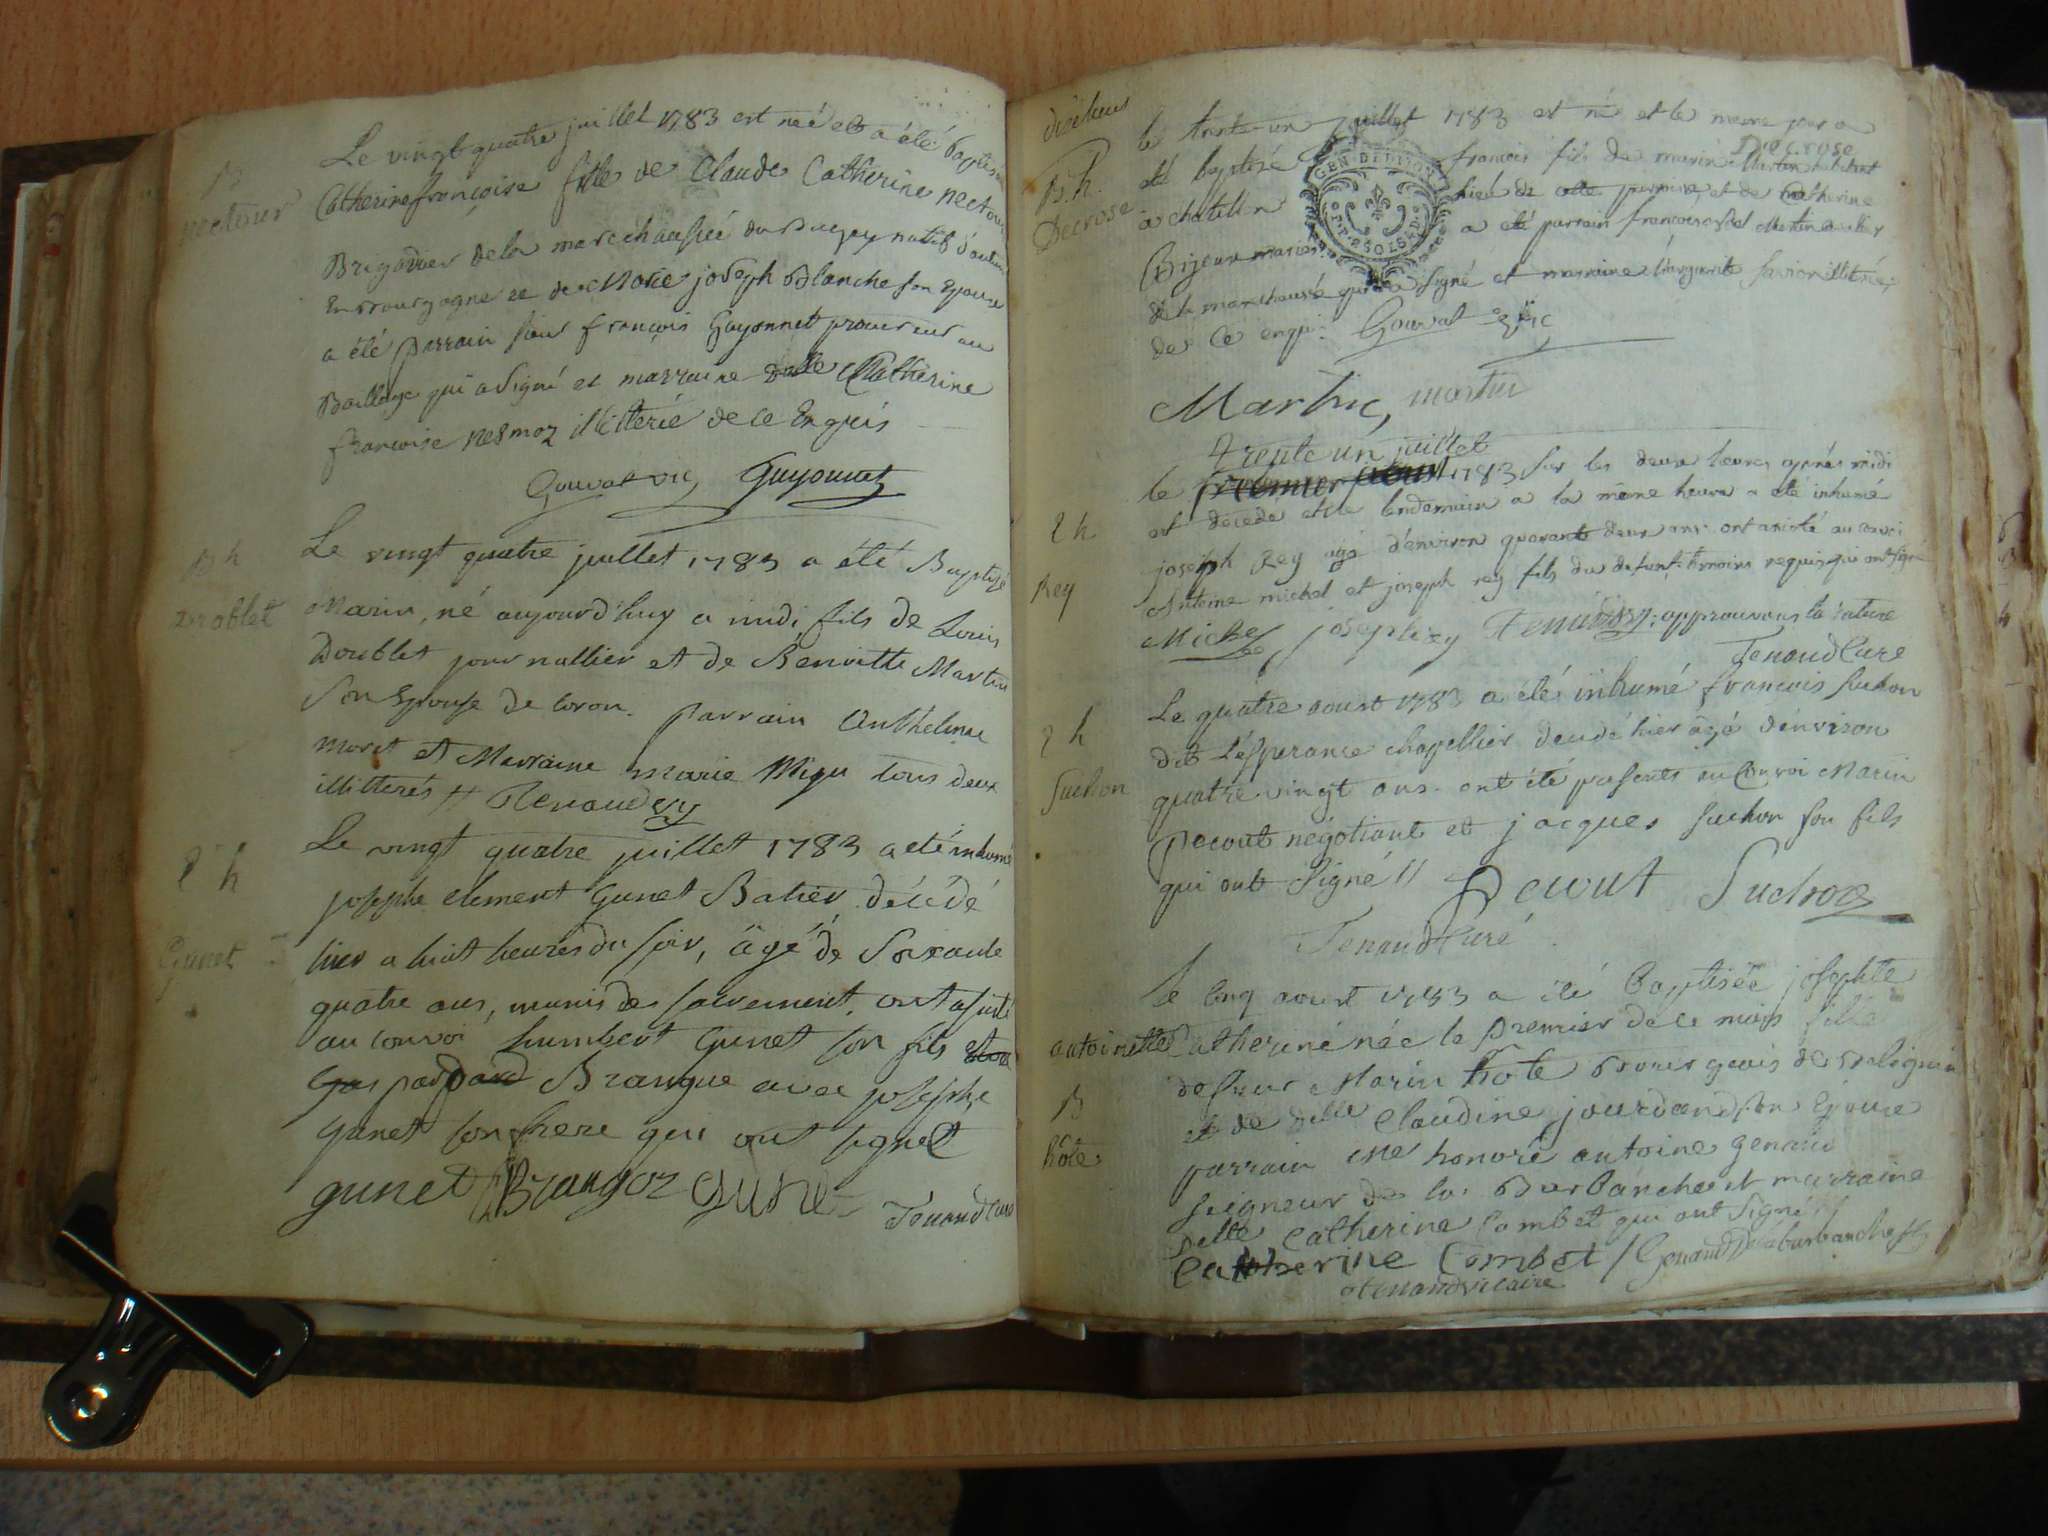 B
nectour
Le vingt quatre juillet 1783 est neé et a été baptisée
Catherine françoise fille de Claude Catherine nectour
Brigadier de la marechaussée du Bugey natif d'autun
En Bourgogne et de Marie joseph Blanche son Epouse
a été parrain sieur françois Guyonnet procureur au
Baillage qui a signé et marraine delle Catherine
françoise nesmoz illitterée de ce Enquis
Gouvat vic Guyonnet
B h
Doublet
Le vingt quatre juillet 1783 a été Baptisé
Marin, né aujourd'huy a midi fils de Louis
Doublet journallier et de Benoitte Martin
son Epouse de Coron. parrain Anthelme
moret et Marraine marie Migu tous deux
illitterés // Tenaud
S h
Gunet
Le vingt quatre juillet 1783 a eté inhumé
josephe clement Gunet Batier décédé
hier a huit heures du soir, âgé de soixante
quatre ans, munis des sacrement, ont assisté
au convoi humbert Gunet son fils
Gaspard Brangue avec josephe
Gunet son frere qui ont signet
gunet Brangoz gune Tenaud Curé
B. h.
Decrose
le trente un juillet 1783 est né et le meme jour a
eté baptizé francois fils de marin Decrose
a chatillon lieu de cette parroisse, et de Catherine
Bijeur mariés a eté parrain francois Martin
de la marechaussé qui a signé et marraine marguerite illiterée
de ce enqui. Gouvat vic
Martin, martin
S h
Rey
trente un juillet
le premier aoust 1783 sur les deux heures après midi
est decedé et le lendemain a la même heure a eté inhumé
joseph Rey agé d'environ quarante deux ans. ont assisté au convoi
Antoine michel et joseph rey fils du defunt temoins requis qui ont signé
Michel joseph rey Tenaud approuvons la rature
Tenaud Curé
S h
Suchon
Le quatre aoust 1783 a été inhumé francois suchon
dit L'ésperance chapellier decedé hier âgé d'environ
quatre vingt ans. ont été presents au Convoi Marin
Pecout négotiant et jacques suchon son fils
qui ont signé // Pecout Suchon
Tenaud Curé
antoinette
B
hôte
Le cinq aoust 1783 a été Baptisée josephte
Catherine née le premier de ce mois fille
de sieur Marin hôte Bourgeois de Belignin
et de delle Claudine jourdan son Epouse
parrain Mre honoré antoine genaud
seigneur de la Burbanche et marraine
delle Catherine Combet qui ont signé //
Catherine Combet / Genaud Delaburbanche //
Tenaud vicaire